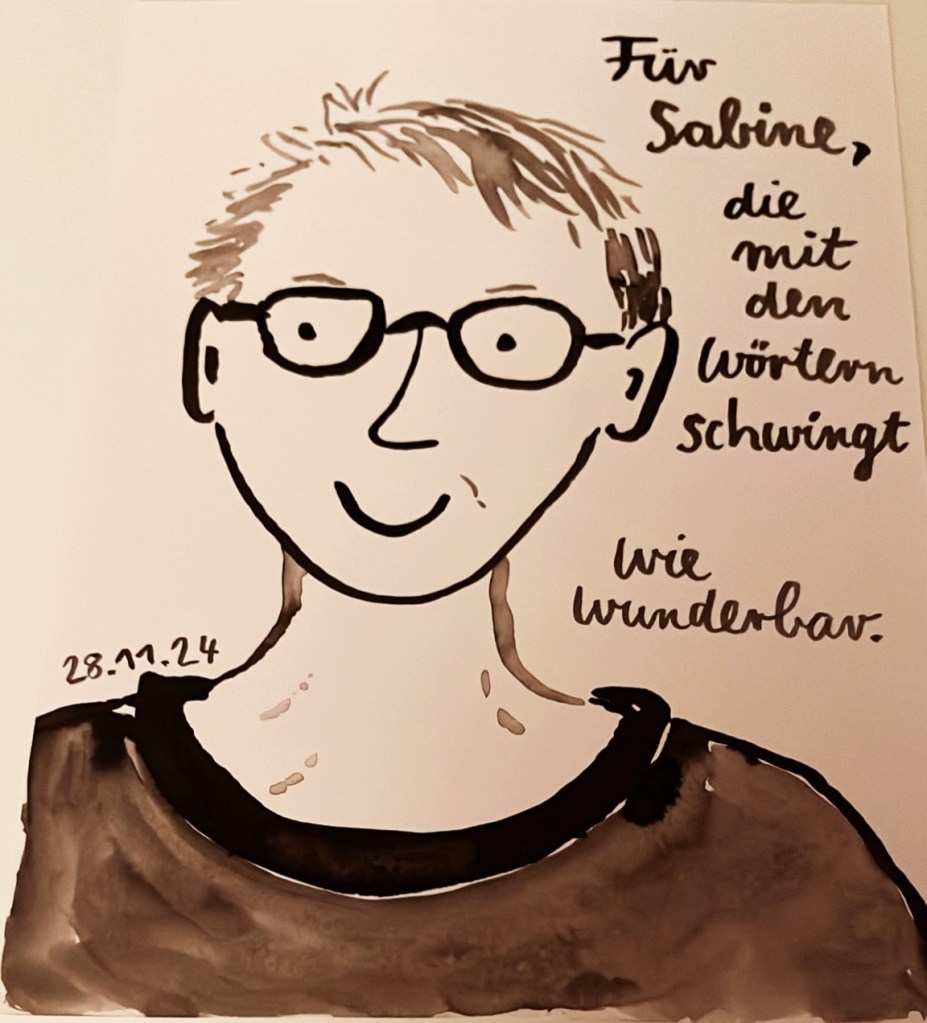 Für
Sabine,
die
mit
den
Wörtern
schwingt
wie
wunderbar.
28.11.24